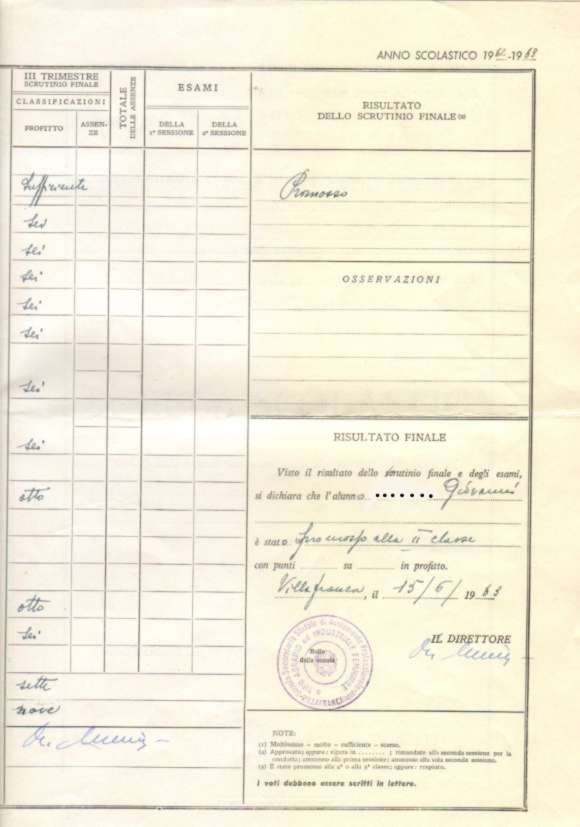 ANNO SCOLASTICO 1962-1963
III TRIMESTRE
SCRUTINIO FINALE
CLASSIFICAZIONI
PROFITTO
ASSEN-
ZE
TOTALE
DELLE ASSENZE
ESAMI
DELLA
1ª SESSIONE
DELLA
2ª SESSIONE
Sufficiente
sei
sei
sei
sei
sei
sei
sei
otto
otto
sei
sette
nove
RISULTATO
DELLO SCRUTINIO FINALE (2)
Promosso
OSSERVAZIONI
RISULTATO FINALE
Visto il risultato dello scrutinio finale e degli esami,
si dichiara che l'alunno ....... Giovanni
è stato promosso alla II classe
con punti su in profitto.
Villafranca, il 15/6/1963
IL DIRETTORE
Bollo
della scuola
NOTE:
(1) Moltissimo - molto - sufficiente - scarso.
(2) Approvato; oppure: ripete in ........ ; rimandato alla seconda sessione per la
condotta; ammesso alla prima sessione; ammesso alla sola seconda sessione.
(3) È stato promosso alla 2ª o alla 3ª classe; oppure: respinto.
I voti debbono essere scritti in lettere.